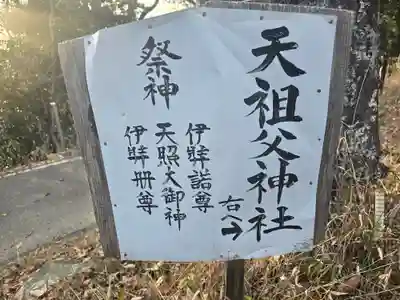 天祖父神社
右へ→
祭神
伊弉諾尊
天照大御神
伊弉册尊